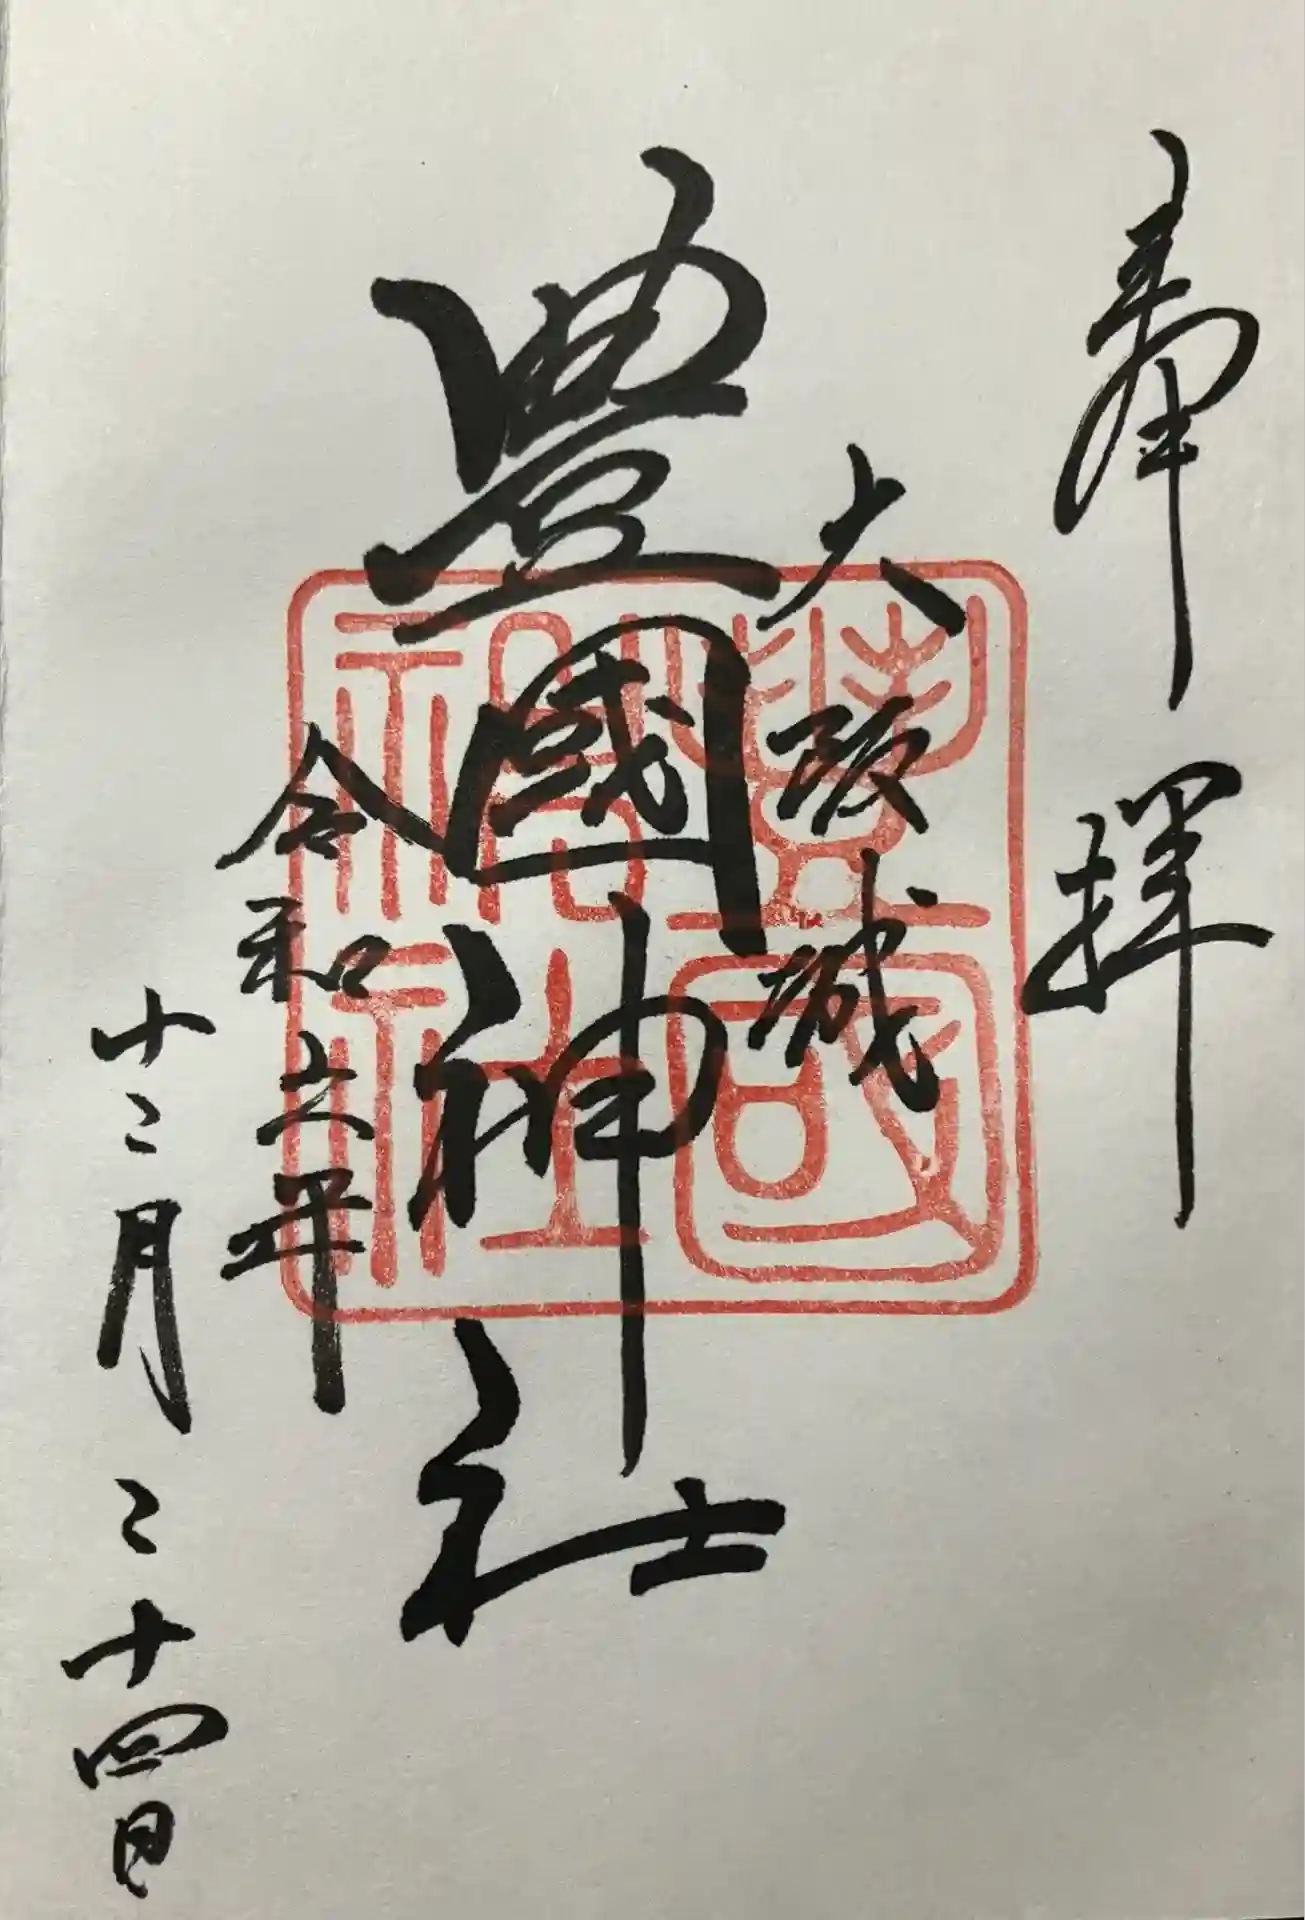 奉拝
大阪城
豊國神社
令和六年
十二月二十四日
豊國
神社